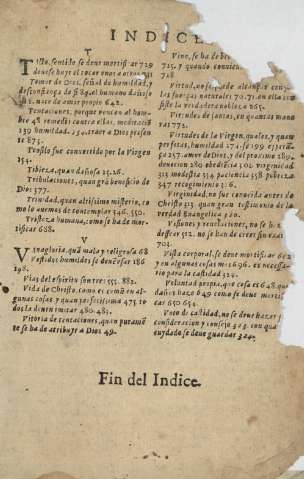 INDICE
T
Tacto, sentido se deue mortificar 729
dense huye el tocar
Temor de Dios, señal de humildad, y
desconfiança de si 89. el humano dañoso
nace de amor propio 642.
Tentaciones, porque
bre 48 remedio contra ellas,
239 humildad 254. traer a Dios presen
te 873.
fue conuertido por la Virgen
354.
Tibieza, quan dañosa 15.26.
Tribulaciones, quan grã beneficio de
Dios 377.
Trinidad, quan altissimo misterio, co
mo lo auemos de contemplar 546. 550.
Tristeza humana, como se ha de mor-
tificar 688.
Vanagloria, quã mala y peligrosa 68
Vestidos humildes se deue vsar 186
198.
Vias del espiritu son tres. 555. 882.
Vida de Christo, como es comũ en al-
gunas cosas y quan perfectissima 475 to
dos la deuen imitar 480. 481.
Vitoria de tentaciones, quan puramẽ
te se ha de atribuyr a Dios 49.
Vino, se ha de
725. y quando conuiene
728
Virtud, no se puede alcançar con so-
las fuerças naturales 70. 71. en ella con
siste la verdadera nobleza 665.
Virtudes de santos, en quantas mane
ras 772.
Virtudes de la Virgen, quales, y quan
perfetas, humildad 274. fe 199
ça 257. amor de Dios, y del proximo 289.
deuocion 280 obediẽcia 302 virginidad
315 modestia 334 paciencia 338 pobreza
347 recogimiento 316.
Virginidad, no fue conocida antes de
Christo 313. quan gran testimonio de la
verdad Euangelica 320.
Visiones y reuelaciones, no se han de
dessear 512. no se han de creer
704.
Vista corporal, se deue mortificar 692
y en algunas cosas mas 696. es necessa-
rio para la castidad 324.
Voluntad propria, que cosa es 648. que
daños haze 649 como se deue mortifi
car 650 654.
Voto de castidad, no se deue hazer sin
consideracion y consejo 323. con que
cuydado se deue guardar 324.
Fin del Indice.